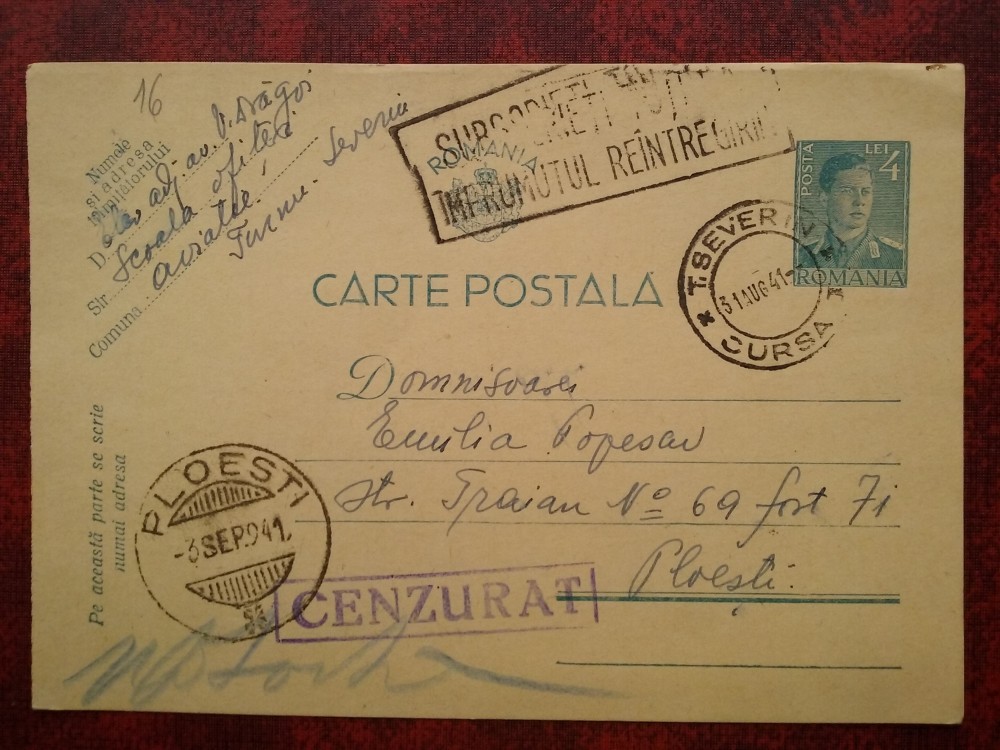 16
Numele
și adresa
trimițătorului
Elev adj. av. V. Drăgoi
D.
Școala ofițeri
Str.
aviație,
Comuna
Turnu-Severin
SUBSCRIEȚI TOȚI
ÎMPRUMUTUL REÎNTREGIRII
ROMANIA
POSTA
LEI 4
ROMANIA
T. SEVERIN
31 AUG 41
CURSA
CARTE POSTALA
Domnisoarei
Emilia Popescu
Str. Traian No 69 fost 71
Ploești.
Pe această parte se scrie
numai adresa
PLOESTI
-3 SEP. 941.
CENZURAT